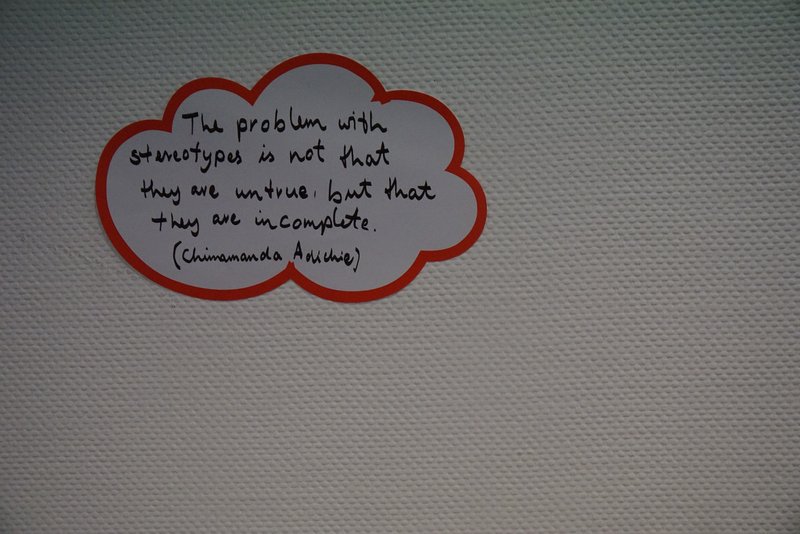 The problem with
stereotypes is not that
they are untrue, but that
they are incomplete.
(Chimamanda Adichie)